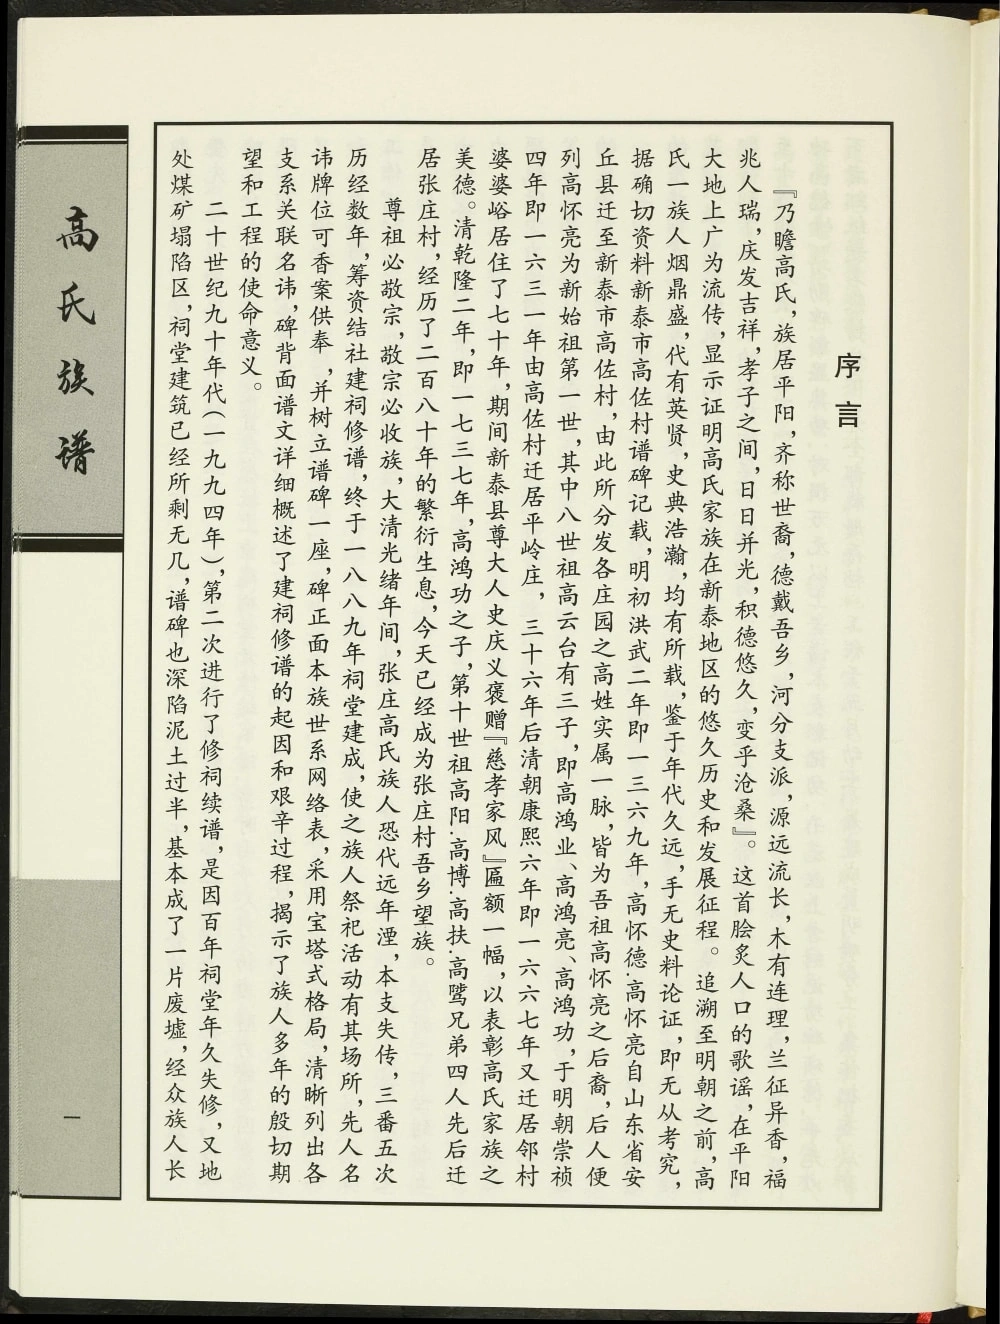 序言
『乃瞻高氏，族居平阳，齐称世裔，德戴吾乡，河分支派，源远流长，木有连理，兰征异香，福
兆人瑞，庆发吉祥，孝子之间，日日并光，积德悠久，变乎沧桑』。这首脍炙人口的歌谣，在平阳
大地上广为流传，显示证明高氏家族在新泰地区的悠久历史和发展征程。追溯至明朝之前，高
氏一族人烟鼎盛，代有英贤，史典浩瀚，均有所载，鉴于年代久远，手无史料论证，即无从考究，
据确切资料新泰市高佐村谱碑记载，明初洪武二年即一三六九年，高怀德.高怀亮自山东省安
丘县迁至新泰市高佐村，由此所分发各庄园之高姓实属一脉，皆为吾祖高怀亮之后裔，后人便
列高怀亮为新始祖第一世，其中八世祖高云台有三子，即高鸿业、高鸿亮、高鸿功，于明朝崇祯
四年即一六三一年由高佐村迁居平岭庄，三十六年后清朝康熙六年即一六六七年又迁居邻村
婆婆峪居住了七十年，期间新泰县尊大人史庆义褒赠『慈孝家风』匾额一幅，以表彰高氏家族之
美德。清乾隆二年，即一七三七年，高鸿功之子，第十世祖高阳.高博.高扶.高骘兄弟四人先后迁
居张庄村，经历了二百八十年的繁衍生息，今天已经成为张庄村吾乡望族。
尊祖必敬宗，敬宗必收族，大清光绪年间，张庄高氏族人恐代远年湮，本支失传，三番五次
历经数年，筹资结社建祠修谱，终于一八八九年祠堂建成，使之族人祭祀活动有其场所，先人名
讳牌位可香案供奉，并树立谱碑一座，碑正面本族世系网络表，采用宝塔式格局，清晰列出各
支系关联名讳，碑背面谱文详细概述了建祠修谱的起因和艰辛过程，揭示了族人多年的殷切期
望和工程的使命意义。
二十世纪九十年代（一九九四年），第二次进行了修祠续谱，是因百年祠堂年久失修，又地
处煤矿塌陷区，祠堂建筑已经所剩无几，谱碑也深陷泥土过半，基本成了一片废墟，经众族人长
高氏族谱
一